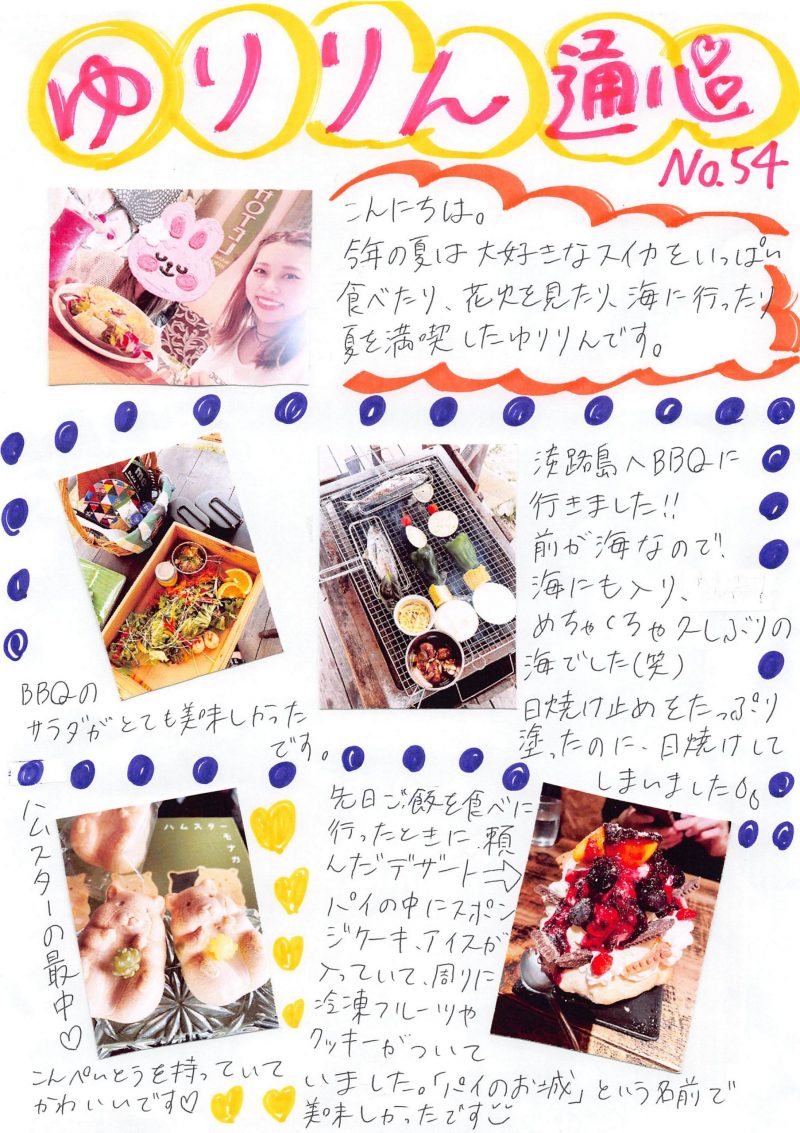 ゆりりん通心
No.54
こんにちは。
今年の夏は大好きなスイカをいっぱい
食べたり、花火を見たり、海に行ったり
夏を満喫したゆりりんです。
淡路島へBBQに
行きました!!
前が海なので、
海にも入り、
めちゃくちゃ久しぶりの
海でした(笑)
日焼け止めをたっぷり
塗ったのに、日焼けして
しまいました
BBQの
サラダがとても美味しかった
です。
ハムスターモナカ
ハムスターの最中♡
こんぺいとうを持っていて
かわいいです♡
先日ご飯を食べに
行ったときに頼
んだデザート⇒
パイの中にスポン
ジケーキ、アイスが
入っていて、周りに
冷凍フルーツや
クッキーがついて
いました。「パイのお城」という名前で
美味しかったです